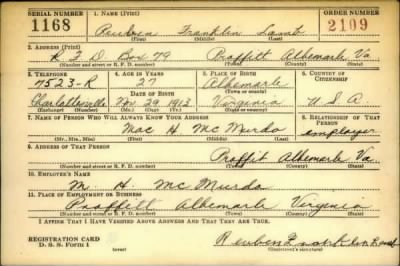 SERIAL NUMBER 1. NAME (Print) ORDER NUMBER
1168 Reuben Franklin Lamb 2109
(First) (Middle) (Last)
2. ADDRESS (Print)
R F D Box 79 Proffitt Albemarle Va
(Number and street or R. F. D. number) (Town) (County) (State)
3. TELEPHONE 4. AGE IN YEARS 5. PLACE OF BIRTH 6. COUNTRY OF CITIZENSHIP
7523-R 27 Albemarle
(Town or county)
Charlottesville DATE OF BIRTH Virginia U.S.A
Nov. 29 1913
(Exchange) (Number) (Mo.) (Day) (Yr.) (State or country)
7. NAME OF PERSON WHO WILL ALWAYS KNOW YOUR ADDRESS 8. RELATIONSHIP OF THAT PERSON
Mac H. McMurdo employer
(Mr., Mrs., Miss) (First) (Middle) (Last)
9. ADDRESS OF THAT PERSON
Proffit Albemarle Va
(Number and street or R. F. D. number) (Town) (County) (State)
10. EMPLOYER'S NAME
M. H. McMurdo
11. PLACE OF EMPLOYMENT OR BUSINESS
Proffitt Albemarle Virginia
(Number and street or R. F. D. number) (Town) (County) (State)
I AFFIRM THAT I HAVE VERIFIED ABOVE ANSWERS AND THAT THEY ARE TRUE.
REGISTRATION CARD
D. S. S. Form 1 Reuben Franklin Lamb
(over) (Registrant's signature)